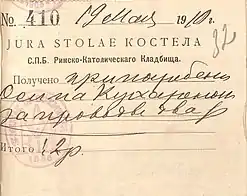 No. 410 19 Мая 1910 г.
32
JURA STOLAE КОСТЕЛА
С.П.Б. Римско-Католическаго Кладбища.
Получено при погребенiи
Осипа
за
Итого 12 р.